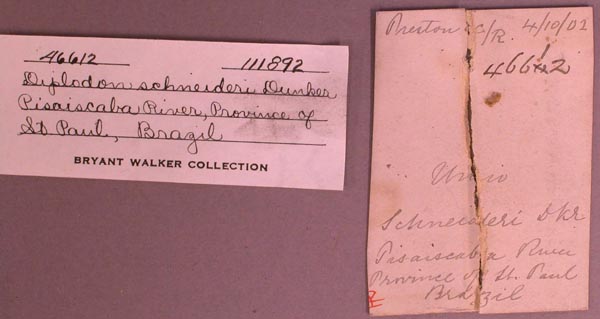 46612 111892
Diplodon schneideri Dunker
Pisaiscaba River, Province of
St Paul, Brazil
BRYANT WALKER COLLECTION
Preston C/R. 4/10/02
46612
Unio
Schneideri Dkr
Pisaiscaba River
Province of St. Paul
Brazil